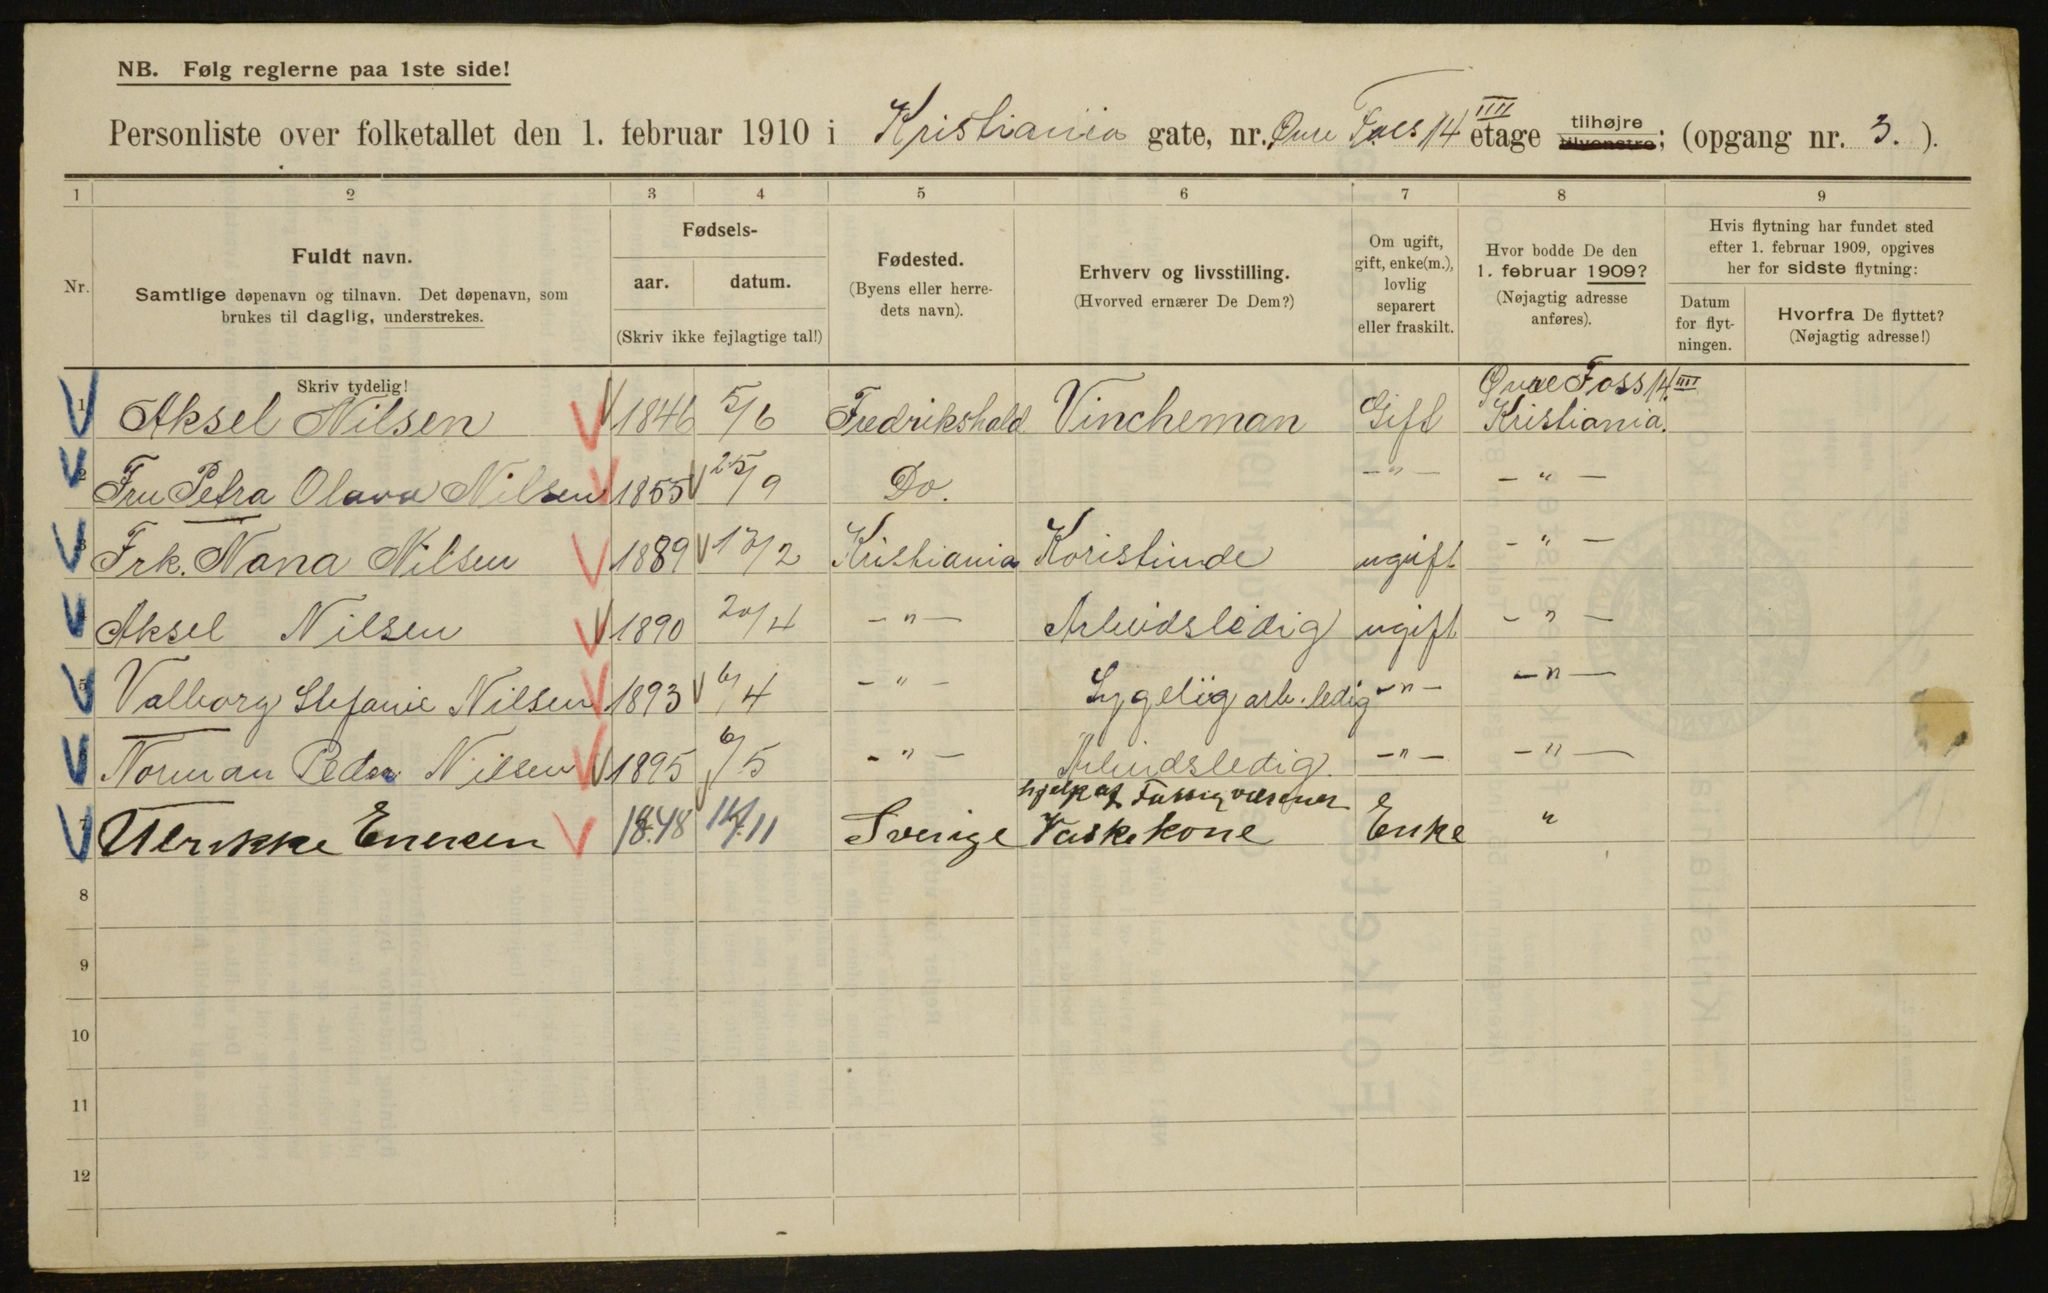 NB. Følg reglerne paa 1ste side!
Personliste over folketallet den 1. februar 1910 i Kristiania gate, nr. Øvre Foss 14 IIII etage tilhøjre tilvenstre; (opgang nr. 3.).
1 2 3 4 5 6 7 8 9
Nr.
Fuldt navn.
Samtlige døpenavn og tilnavn. Det døpenavn, som
brukes til daglig, understrekes.
Fødsels-
aar. datum.
(Skriv ikke fejlagtige tal!)
Fødested.
(Byens eller herre-
dets navn).
Erhverv og livsstilling.
(Hvorved ernærer De Dem?)
Om ugift,
gift, enke(m.),
lovlig
separert
eller fraskilt.
Hvor bodde De den
1. februar 1909?
(Nøjagtig adresse
anføres).
Hvis flytning har fundet sted
efter 1. februar 1909, opgives
her for sidste flytning:
Datum
for flyt-
ningen.
Hvorfra De flyttet?
(Nøjagtig adresse!)
Skriv tydelig!
Øvre Foss 14 IIII
1 Aksel Nilsen 1846 5/6 Fredrikshald Vincheman Gift Kristiania.
2 Fru Petra Olava Nilsen 1855 25/9 Do. -"- -"-
3 Frk. Nana Nilsen 1889 13/2 Kristiania Koristinde ugift -"-
Aksel Nilsen 1890 20/4 -"- Arbeidsledig ugift -"-
5 Valborg Stefanie Nilsen 1893 6/4 -"- Sygelig arb. ledig -"- -"-
Norman Peder Nilsen 1895 6/5 -"- Arbeidsledig. -"- -"-
hjelp af Fattigvæsenet
7 Ulrikke Enersen 1848 14/11 Sverige Vaskekone Enke "
8
9
10
11
12